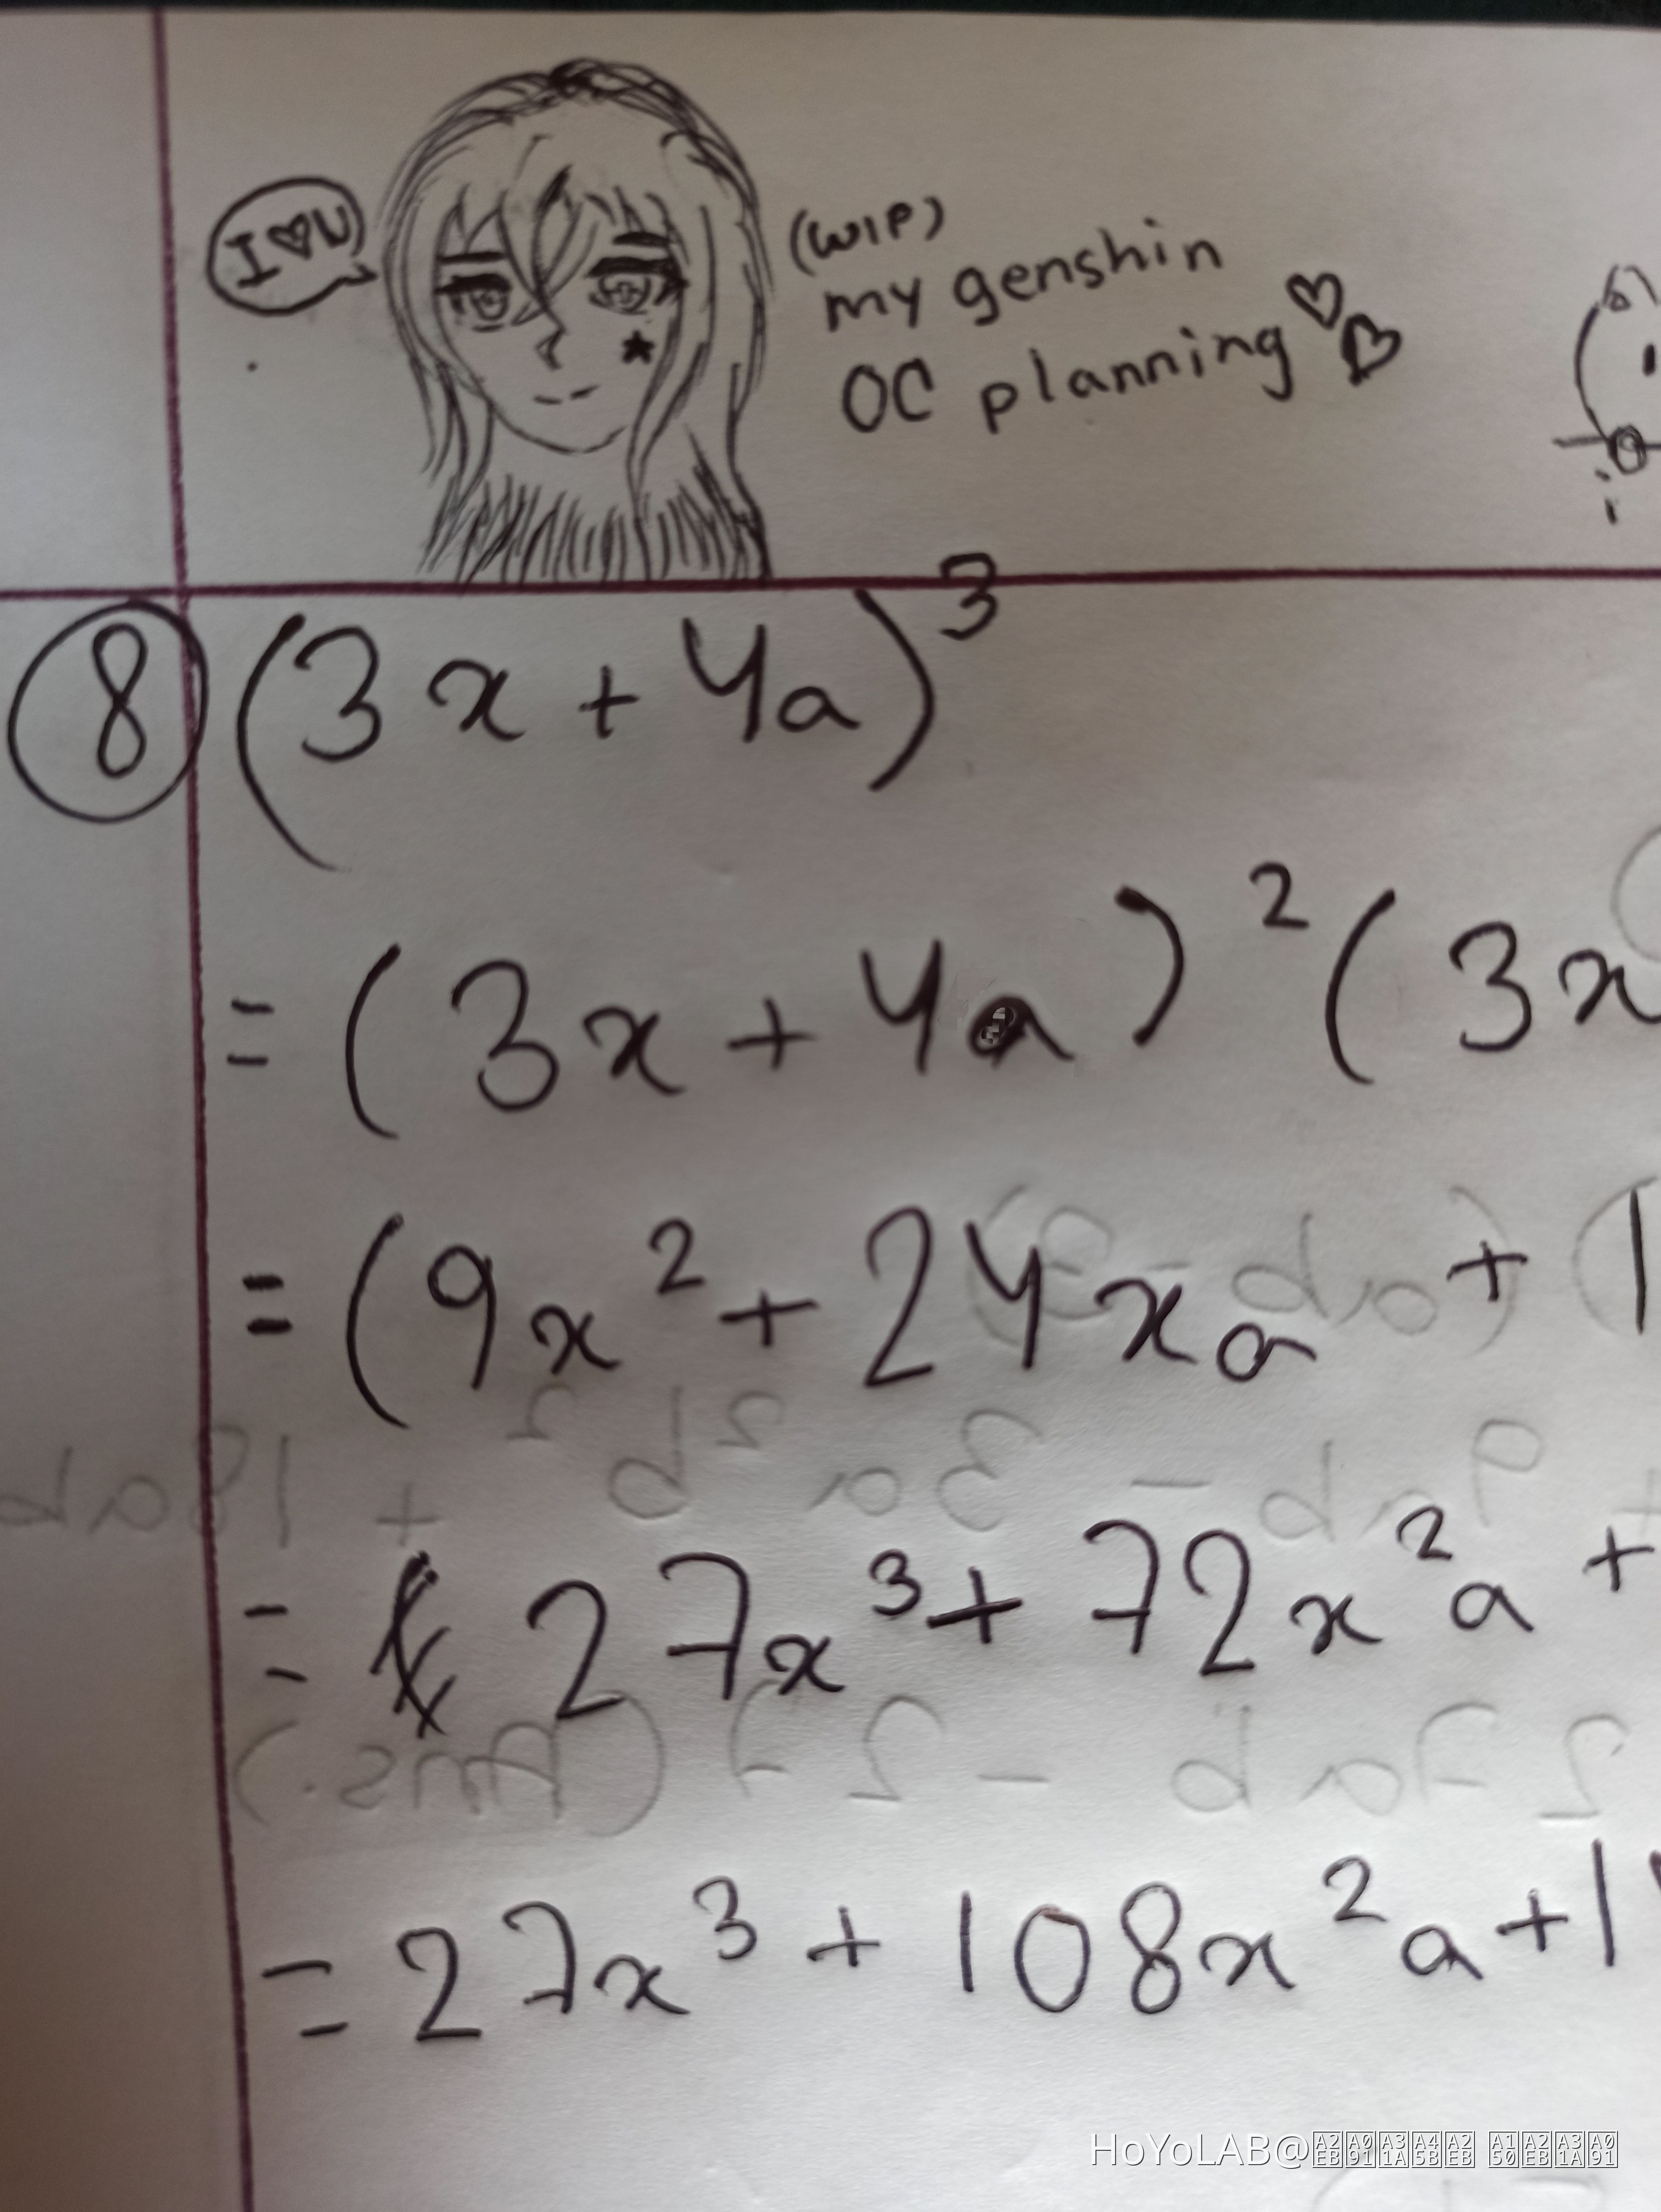 I ♡ U
(WIP)
my genshin
OC planning ♡♡
⑧ (3x + 4a)³
= (3x + 4a)² (3x
= (9x² + 24xa + 1
= 27x³ + 72x²a +
= 27x³ + 108x²a + 1
HoYoLAB@